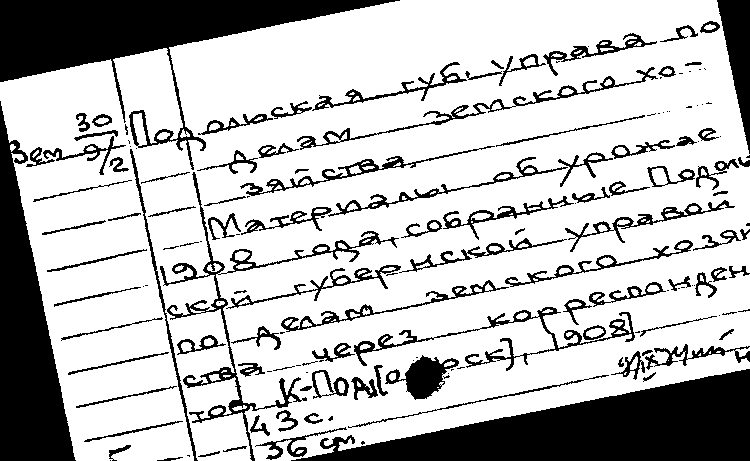 Зем 30/9/2
Подольская губ. управа по
делам земского хо-
зяйства.
Материалы об урожае
1908 года, собранные Подоль
ской губернской управой
по делам земского хозяй
ства через корреспонден
тов. К-Под[о рск], 1908].
43 с.
36 см.